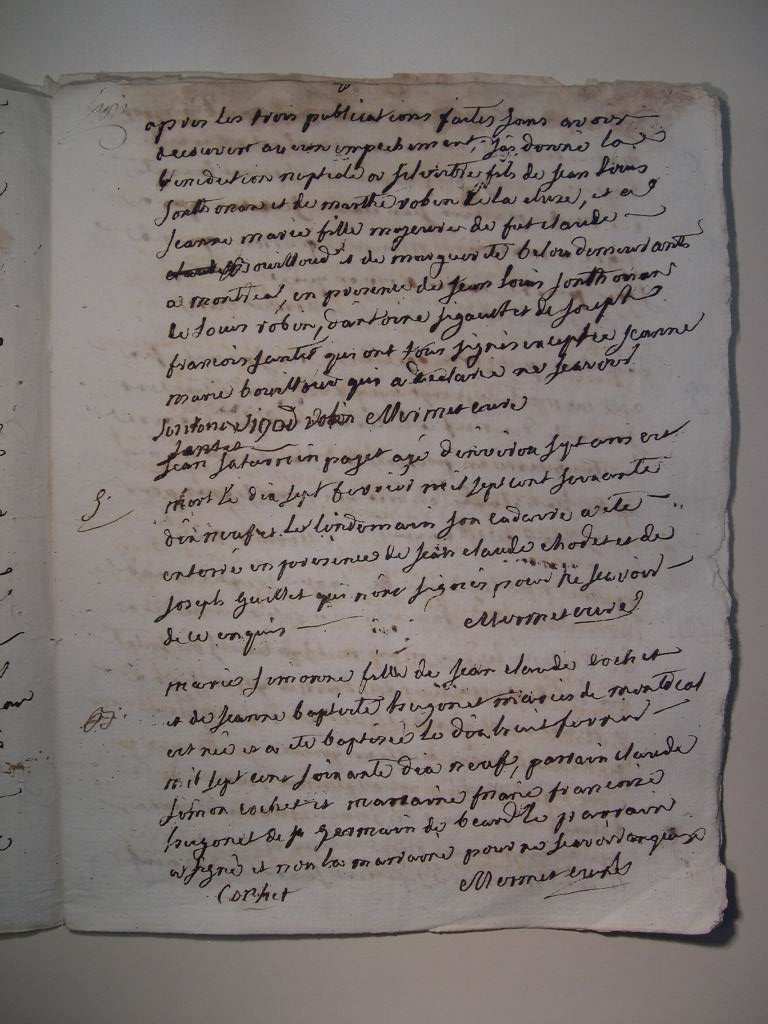 apres les trois publications faites sans avoir
decouvert aucun empechement, j'ai donné la
benediction nuptiale a silvestre fils de jean louis
sonthonax et de marthe robin de la cluse, et a
jeanne marie fille majeure de fut claude
bouilloud et de marguerite belou demeurants
a montreal, en presence de jean louis sonthonax
de louis robin, d'antoine sigault et de joseph
francois jantet qui ont tous signés exceptée jeanne
marie bouilloud qui a declaré ne scavoir
robin Mermet curé
jantet
jean saturnin paget agé d'environ sept ans est
mort le dix sept fevrier mil sept cent soixante
5.
dix neuf et le lendemain son cadavre a été
enterré en presence de jean claude chodet et de
joseph guillet qui n'ont signés pour ne scavoir
de ce enquis Mermet curé
marie simonne fille de jean claude cochet
et de jeanne baptiste hugonet mariés de montreal
est née et a été baptisée le dix huit fevrier
mil sept cent soixante dix neuf, parrain claude
simon cochet et marraine marie francoise
hugonet de st germain de beard le parrain
a signé et non la marraine pour ne scavoir enquise
Cochet Mermet curé